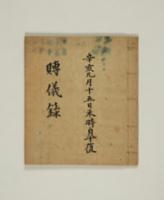 辛亥九月十五日未時自卒復
賻儀錄